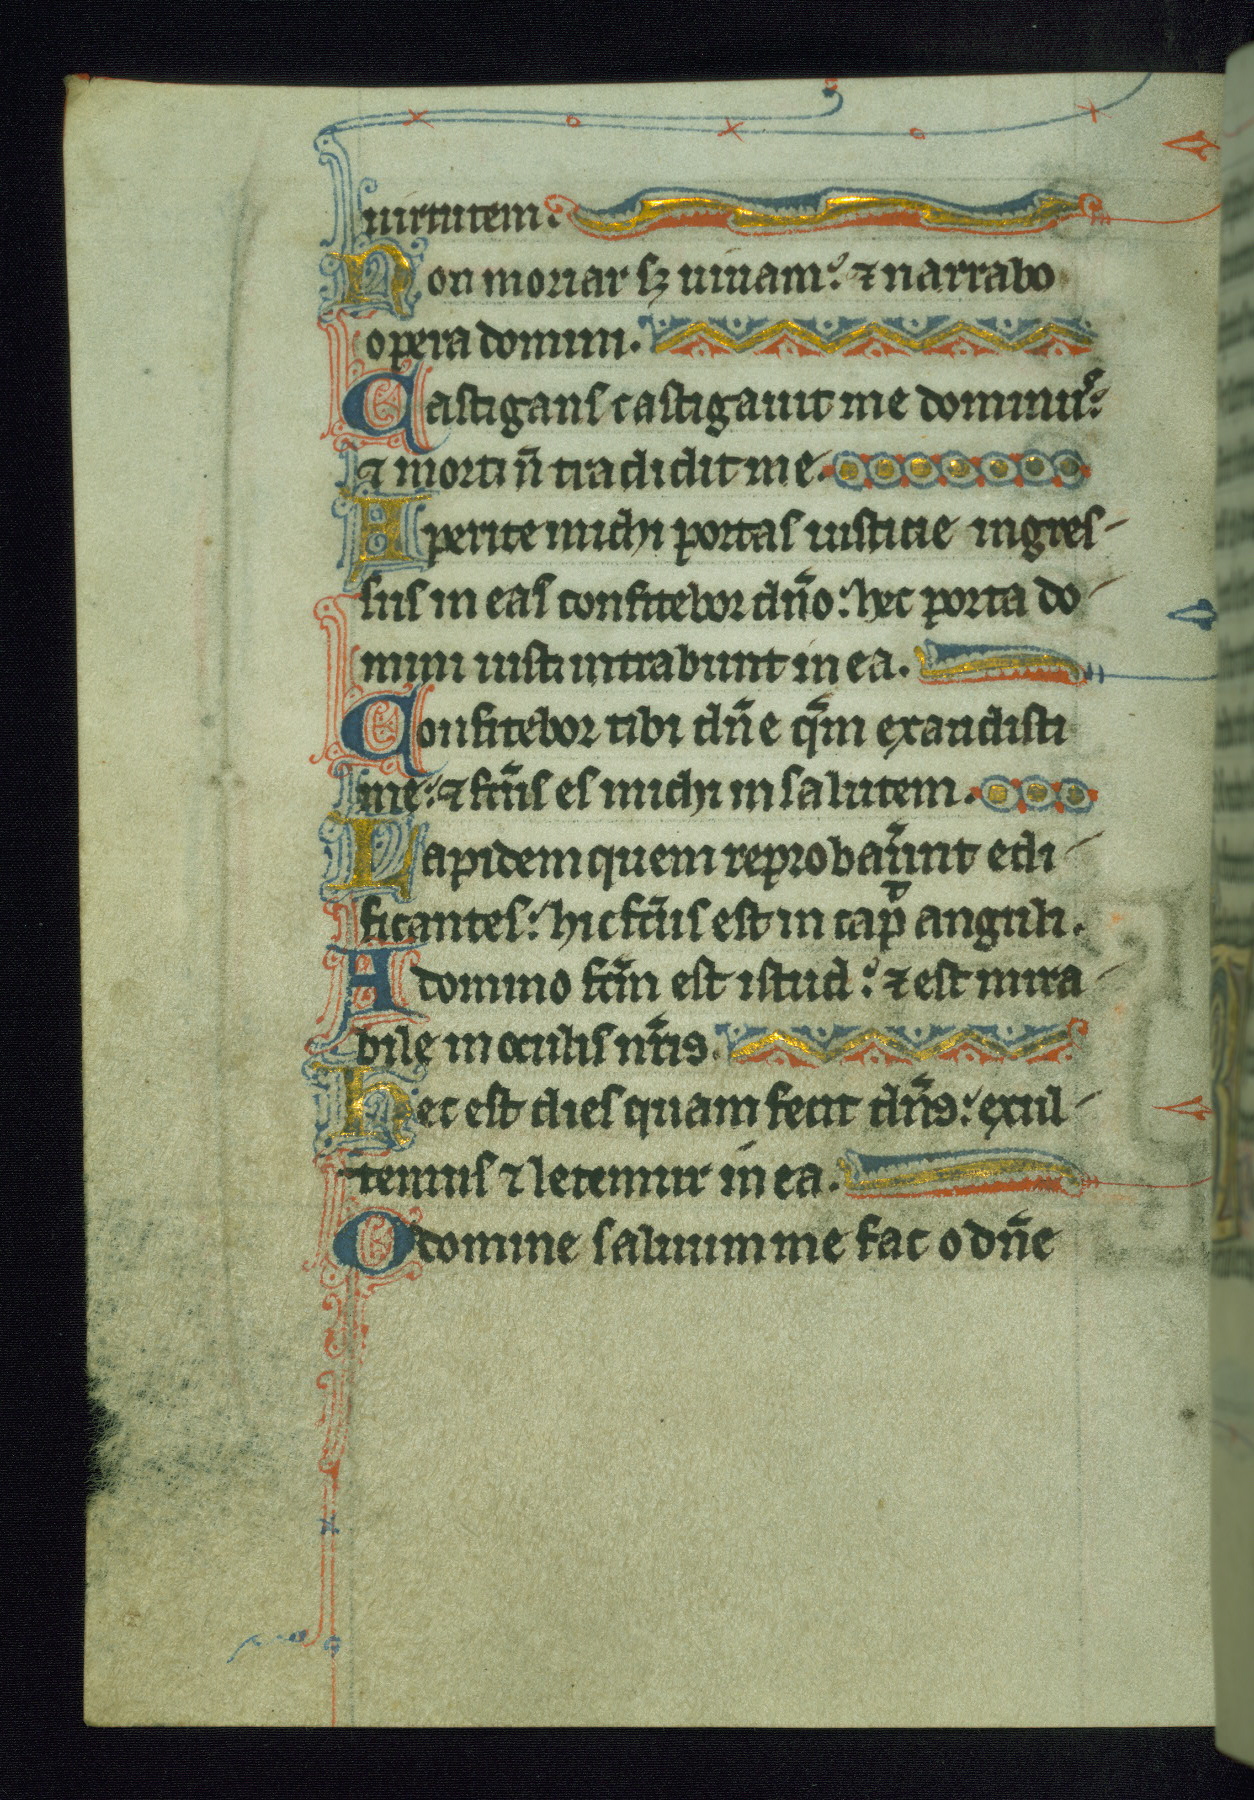 uirtutem.
Non moriar sꝫ uiuam: ⁊ narrabo
opera domini.
Castigans castigauit me dominuꝰ:
⁊ morti n̄ tradidit me.
Aperite michi portas iusticie ingres-
sus in eas confitebor dn̄o: hec porta do-
mini iusti intrabunt in ea.
Confitebor tibi dn̄e qm̄ exaudisti
me: ⁊ fc̄us es michi in salutem.
Lapidem quem reprobauer̄unt edi-
ficantes: hic fc̄us est in cap̄ anguli.
A domino fc̄m est istud: ⁊ est mira-
bile in oculis nr̄is.
Hec est dies quam fecit dn̄s: exul-
temus ⁊ letemur in ea.
O domine saluum me fac o dn̄e